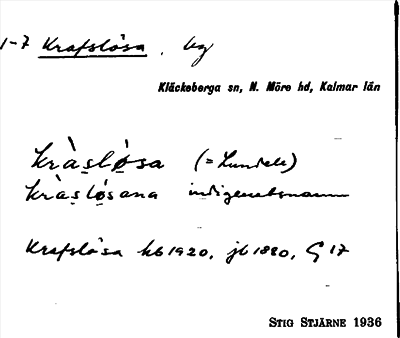 1-7 Krafslösa. by
Kläckeberga sn, N. Möre hd, Kalmar län
kràslö̀sa (= Lundels)
kràslösana
Krafslösa hb 1920, jb 1880, G 17
STIG STJÄRNE 1936